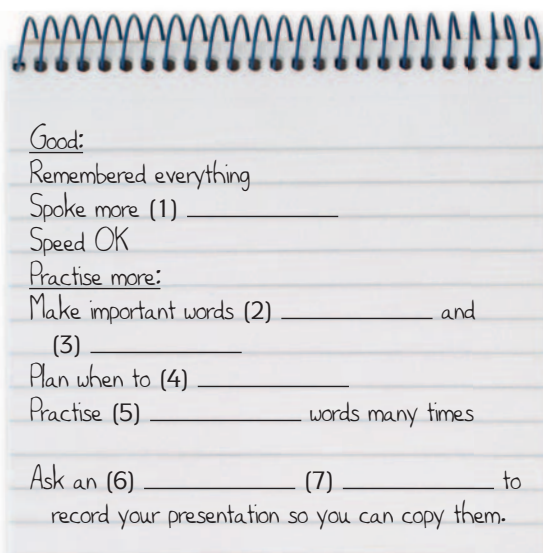 Good:
Remembered everything
Spoke more (1) ____________
Speed OK
Practise more:
Make important words (2) ____________ and
(3) ____________
Plan when to (4) ____________
Practise (5) ____________ words many times
Ask an (6) ____________ (7) ____________ to
record your presentation so you can copy them.